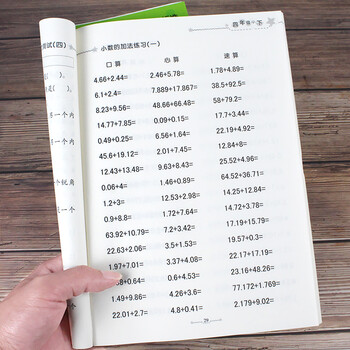 小数的加法练习(一)
口算 心算 速算
4.66+2.44= 2.46+5.78= 1.78+4.89=
6.1+2.4= 7.889+17.867= 38.5+92.5=
8.23+9.56= 48.66+66.48= 58+79.2=
14.77+7.85= 0.09+0.15= 3.44+7.17=
0.49+0.25= 6.56+1.64= 22.19+4.92=
45.6+19.12= 2.01+7.45= 12.84+8=
12.43+13.48= 9.63+8.43= 25.52+4.96=
0.06+4= 1.46+0.89= 64.52+36.71=
1.2+3= 12.53+2.98= 14.25+12.84=
0.9+8.8= 1.72+7.64= 14.72+3.72=
63.92+10.79= 7.2+3.42= 17.19+15.79=
22.63+2.06= 3.5+1.53= 19.57+0.3=
1.97+7.01= 3.37+4.08= 22.17+19.11=
0.6+4.53= 23.16+48.26=
1.49+9.86= 4.26+3.6= 77.172+1.769=
22.01+2.7= 4.8+0.41= 2.179+9.02=